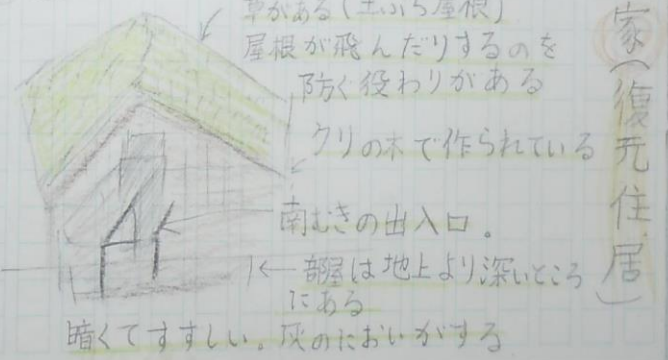 家(復元住居)
草がある(土ぶき屋根)
屋根が飛んだりするのを
防ぐ役わりがある
クリの木で作られている
南むきの出入口。
部屋は地上より深いところ
にある
暗くてすすしい。灰のにおいがする